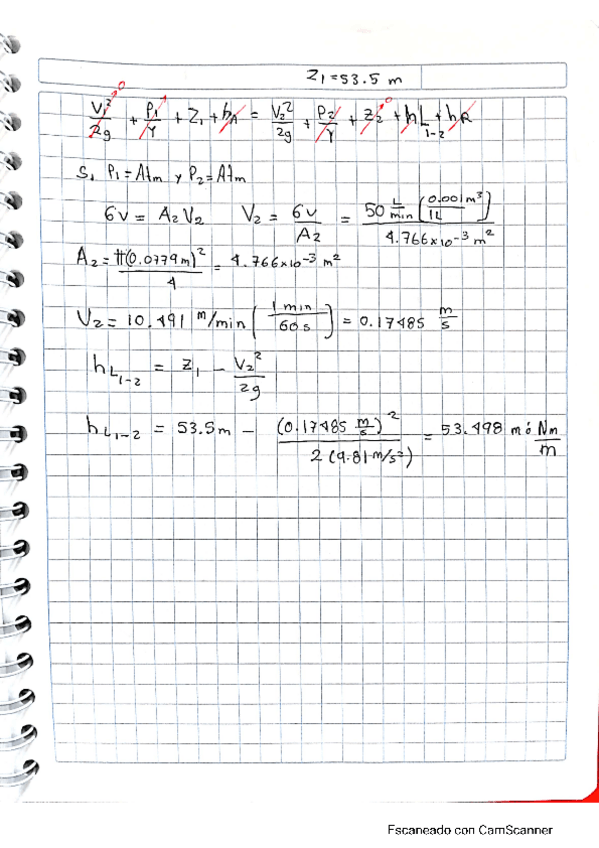 Z1 = 53.5 m
V1²/2g + P1/γ + Z1 + hA = V2²/2g + P2/γ + Z2 + hL1-2 + hR
Si P1 = Atm y P2 = Atm
6v = A2 V2   V2 = 6v/A2 = 50 L/min (0.001 m³/1L) / 4.766x10⁻³ m²
A2 = π(0.0779m)²/4 = 4.766x10⁻³ m²
V2 = 10.491 m/min (1 min/60 s) = 0.17485 m/s
hL1-2 = Z1 - V2²/2g
hL1-2 = 53.5m - (0.17485 m/s)²/2(9.81 m/s²) = 53.498 m ó Nm/m
Escaneado con CamScanner